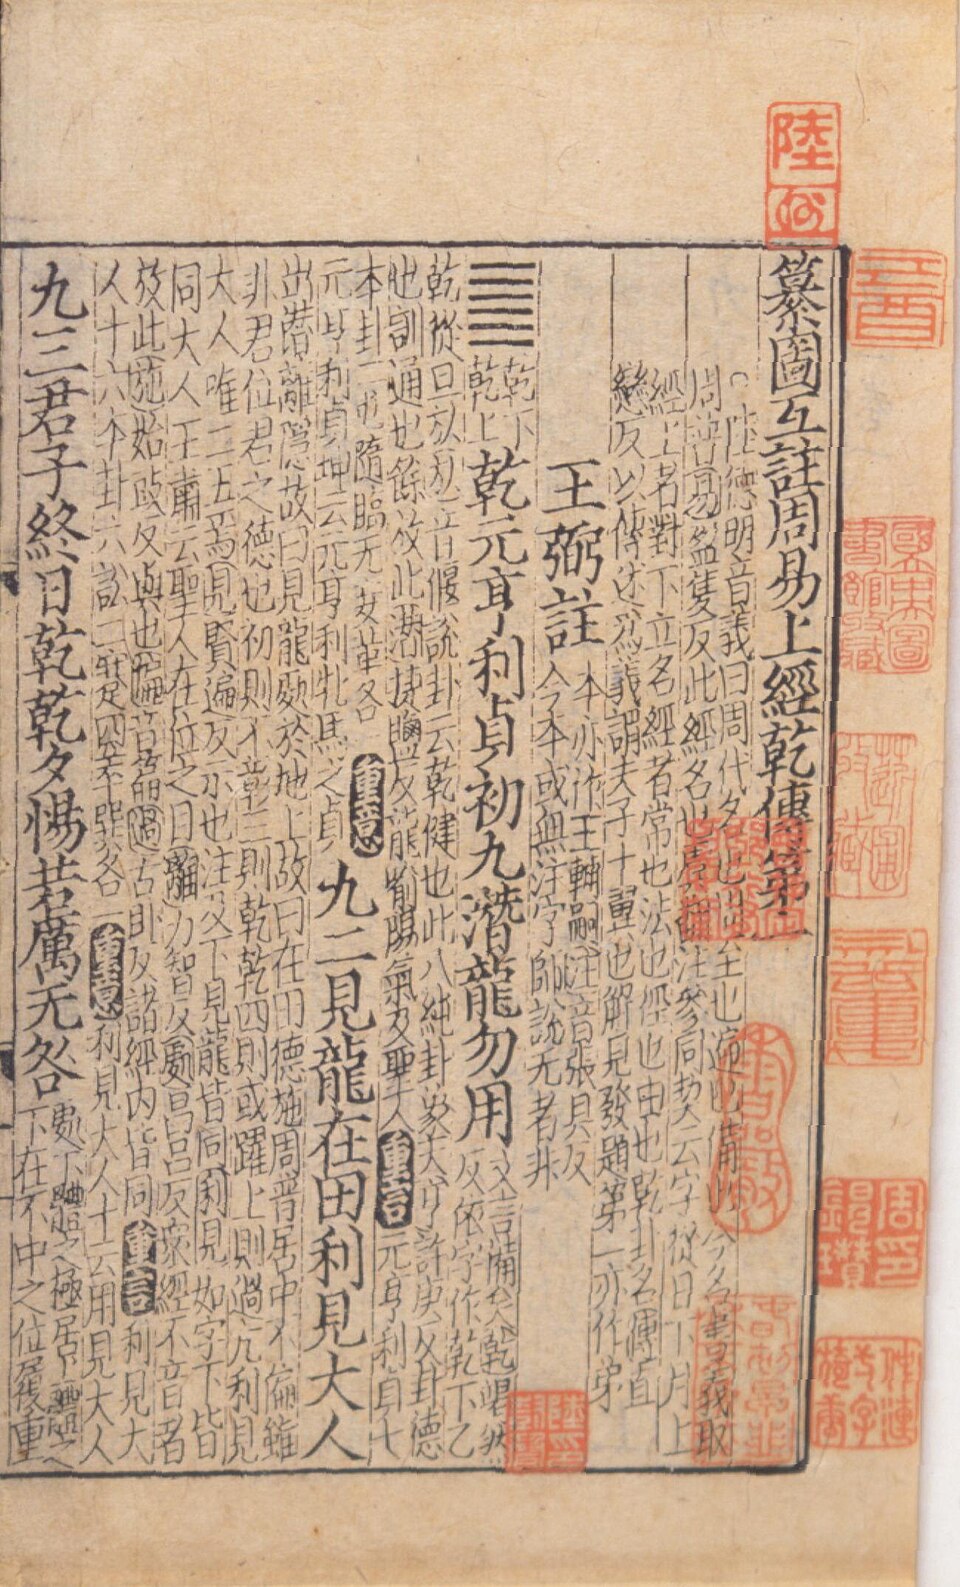 纂圖互註周易上經乾傳第一
○陸德明音義曰周代名也周至也遍也備也今名書義取
周普易盈隻反此經名也虞翻注參同契云字從日下月上
經上者對下立名經者常也法也徑也由也乾卦名傳直
戀反以傳述爲義謂夫子十翼也解見發題第一亦作弟
王弼註
本亦作王輔嗣注音張具反
今本或無注字師說无者非
䷀
乾下
乾上
乾元亨利貞初九潛龍勿用
文言備矣乾竭然
反依字作乾下乙
乾從旦㫃㫃音偃說卦云乾健也此八純卦象天亨許庚反卦德
也訓通也餘放此潛捷鹽反龍喻陽氣及聖人重言元亨利貞七
本卦二屯隨臨无妄革各重意
元亨利貞坤云元亨利牝馬之貞
九二見龍在田利見大人
出潛離隱故曰見龍處於地上故曰在田德施周普居中不偏雖
非君位君之德也初則不彰三則乾乾四則或躍上則過亢利見
大人唯二五焉見賢遍反示也注及下見龍皆同利見如字下皆
同大人王肅云聖人在位之目離力智反處昌呂反衆經不音者
放此施始豉反與也偏音篇過古卧反諸經內皆同重言利見大
人十六本卦六訟二蹇四萃巽各一重意利見大人十云用見大人
九三君子終日乾乾夕惕若厲无咎
處下體之極居上體之
下在不中之位履重
陸